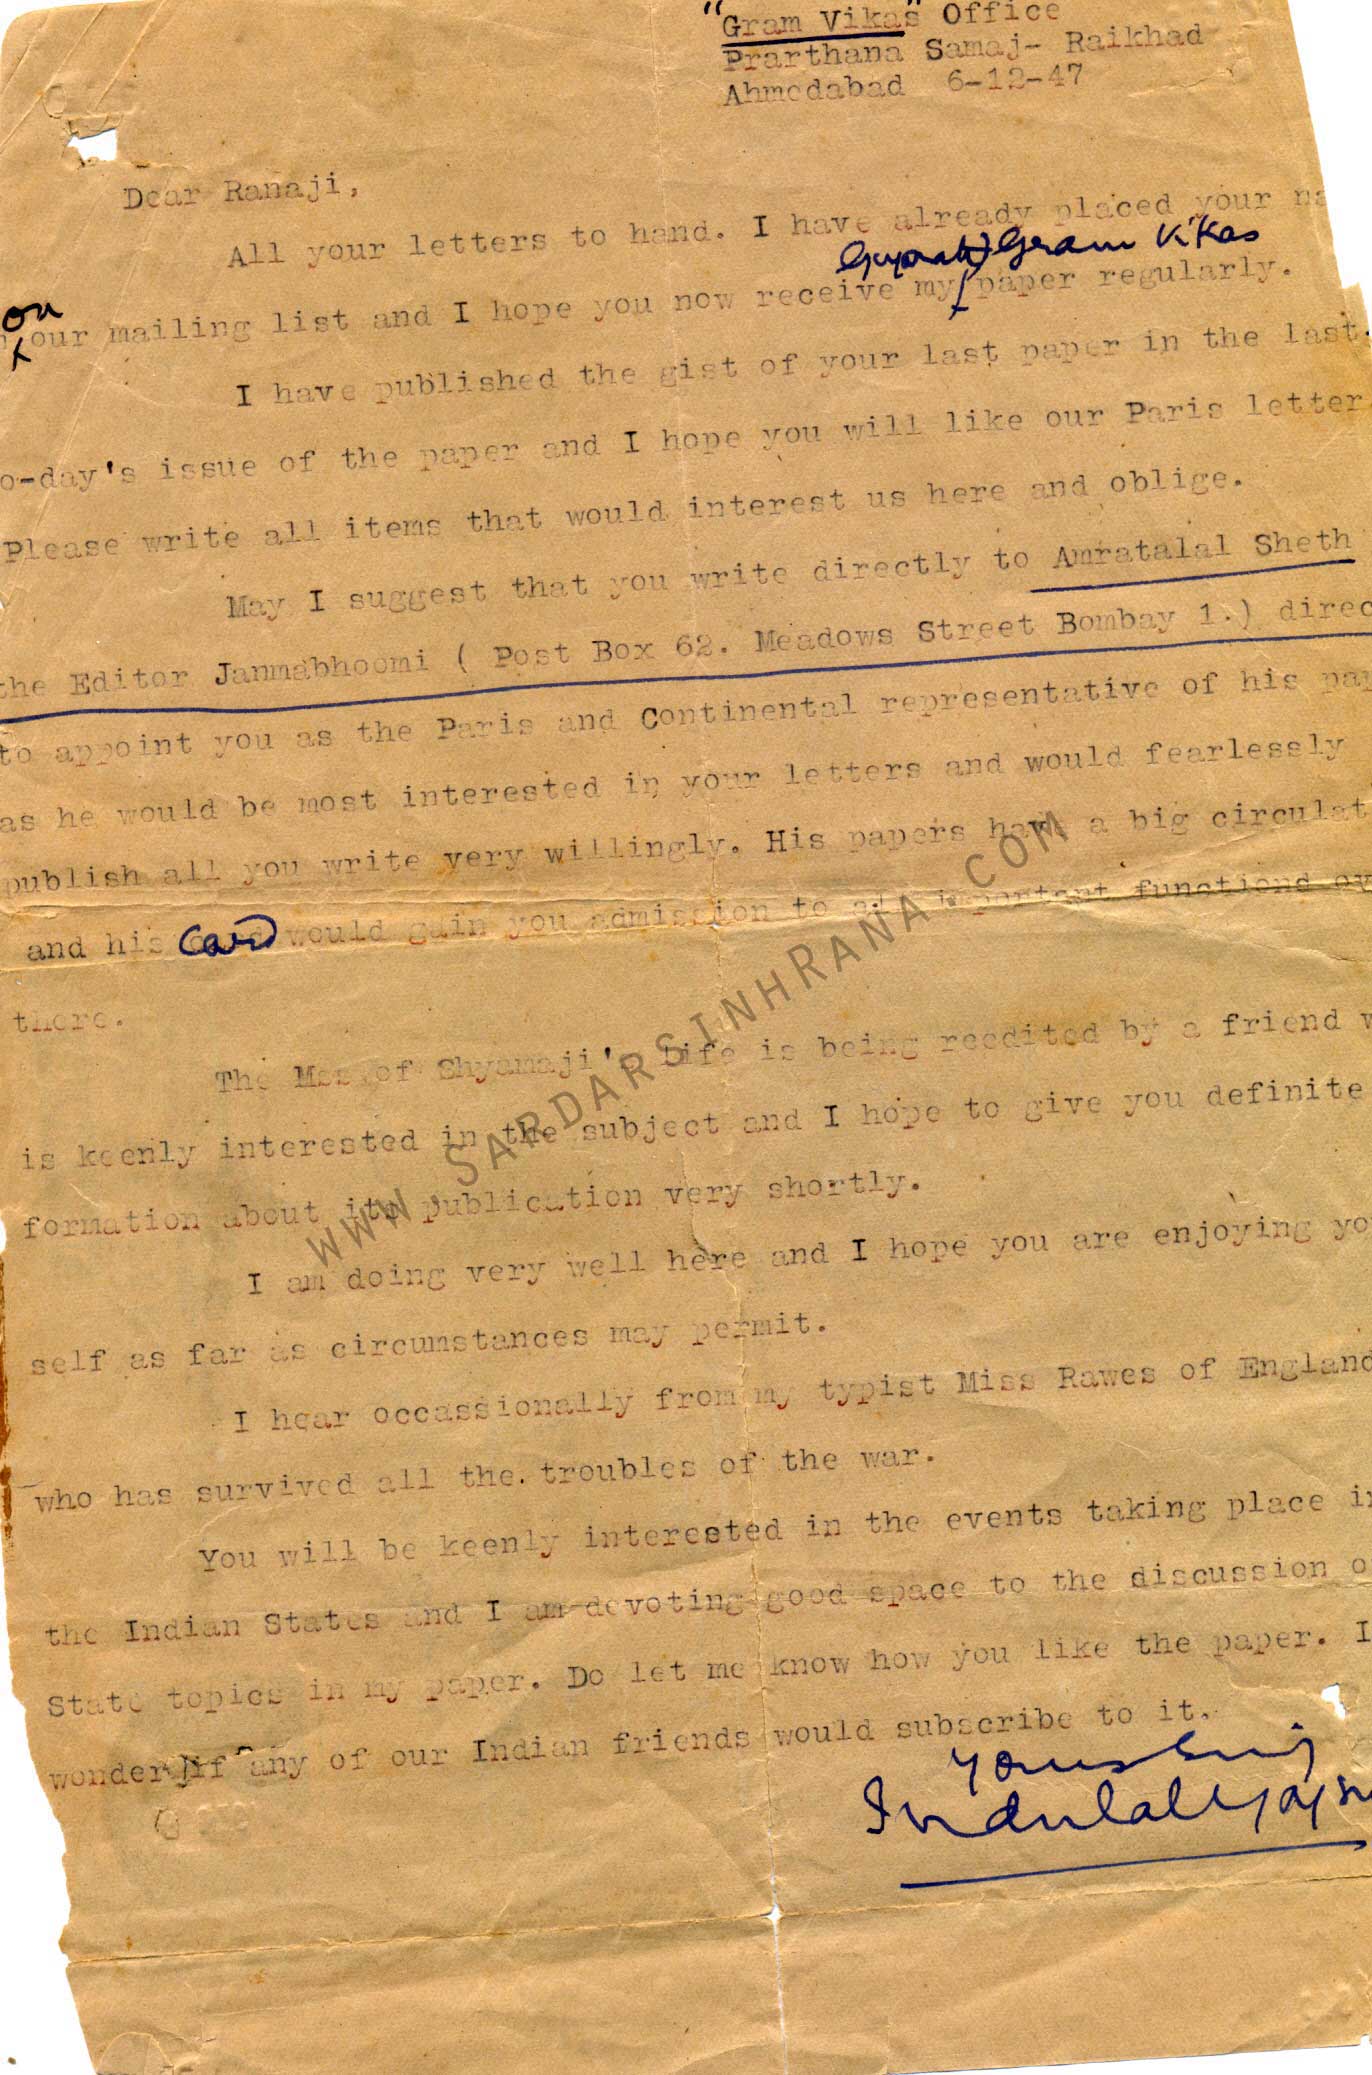 "Gram Vikas" Office
Prarthana Samaj- Raikhad
Ahmedabad 6-12-47
Dear Ranaji,
All your letters to hand. I have already placed your na
Gujarati Gram Vikas
on
our mailing list and I hope you now receive my paper regularly.
I have published the gist of your last paper in the last.
o-day's issue of the paper and I hope you will like our Paris letter
Please write all items that would interest us here and oblige.
May I suggest that you write directly to Amratalal Sheth
the Editor Janmabhoomi ( Post Box 62. Meadows Street Bombay 1.) direc
to appoint you as the Paris and Continental representative of his pap
as he would be most interested in your letters and would fearlessly
publish all you write very willingly. His papers have a big circulat
and his card would gain you admission to all important functiond ov
there.
The Mss of Shyamaji's Life is being reedited by a friend w
is keenly interested in the subject and I hope to give you definite
formation about its publication very shortly.
I am doing very well here and I hope you are enjoying you
self as far as circumstances may permit.
I hear occassionally from my typist Miss Rawes of England
who has survived all the. troubles of the war.
You will be keenly interested in the events taking place in
the Indian States and I am devoting good space to the discussion o
State topics in my paper. Do let me know how you like the paper. I
wonder if any of our Indian friends would subscribe to it.
Yours
Indulal Yajn
www.SARDARSINHRANA.COM